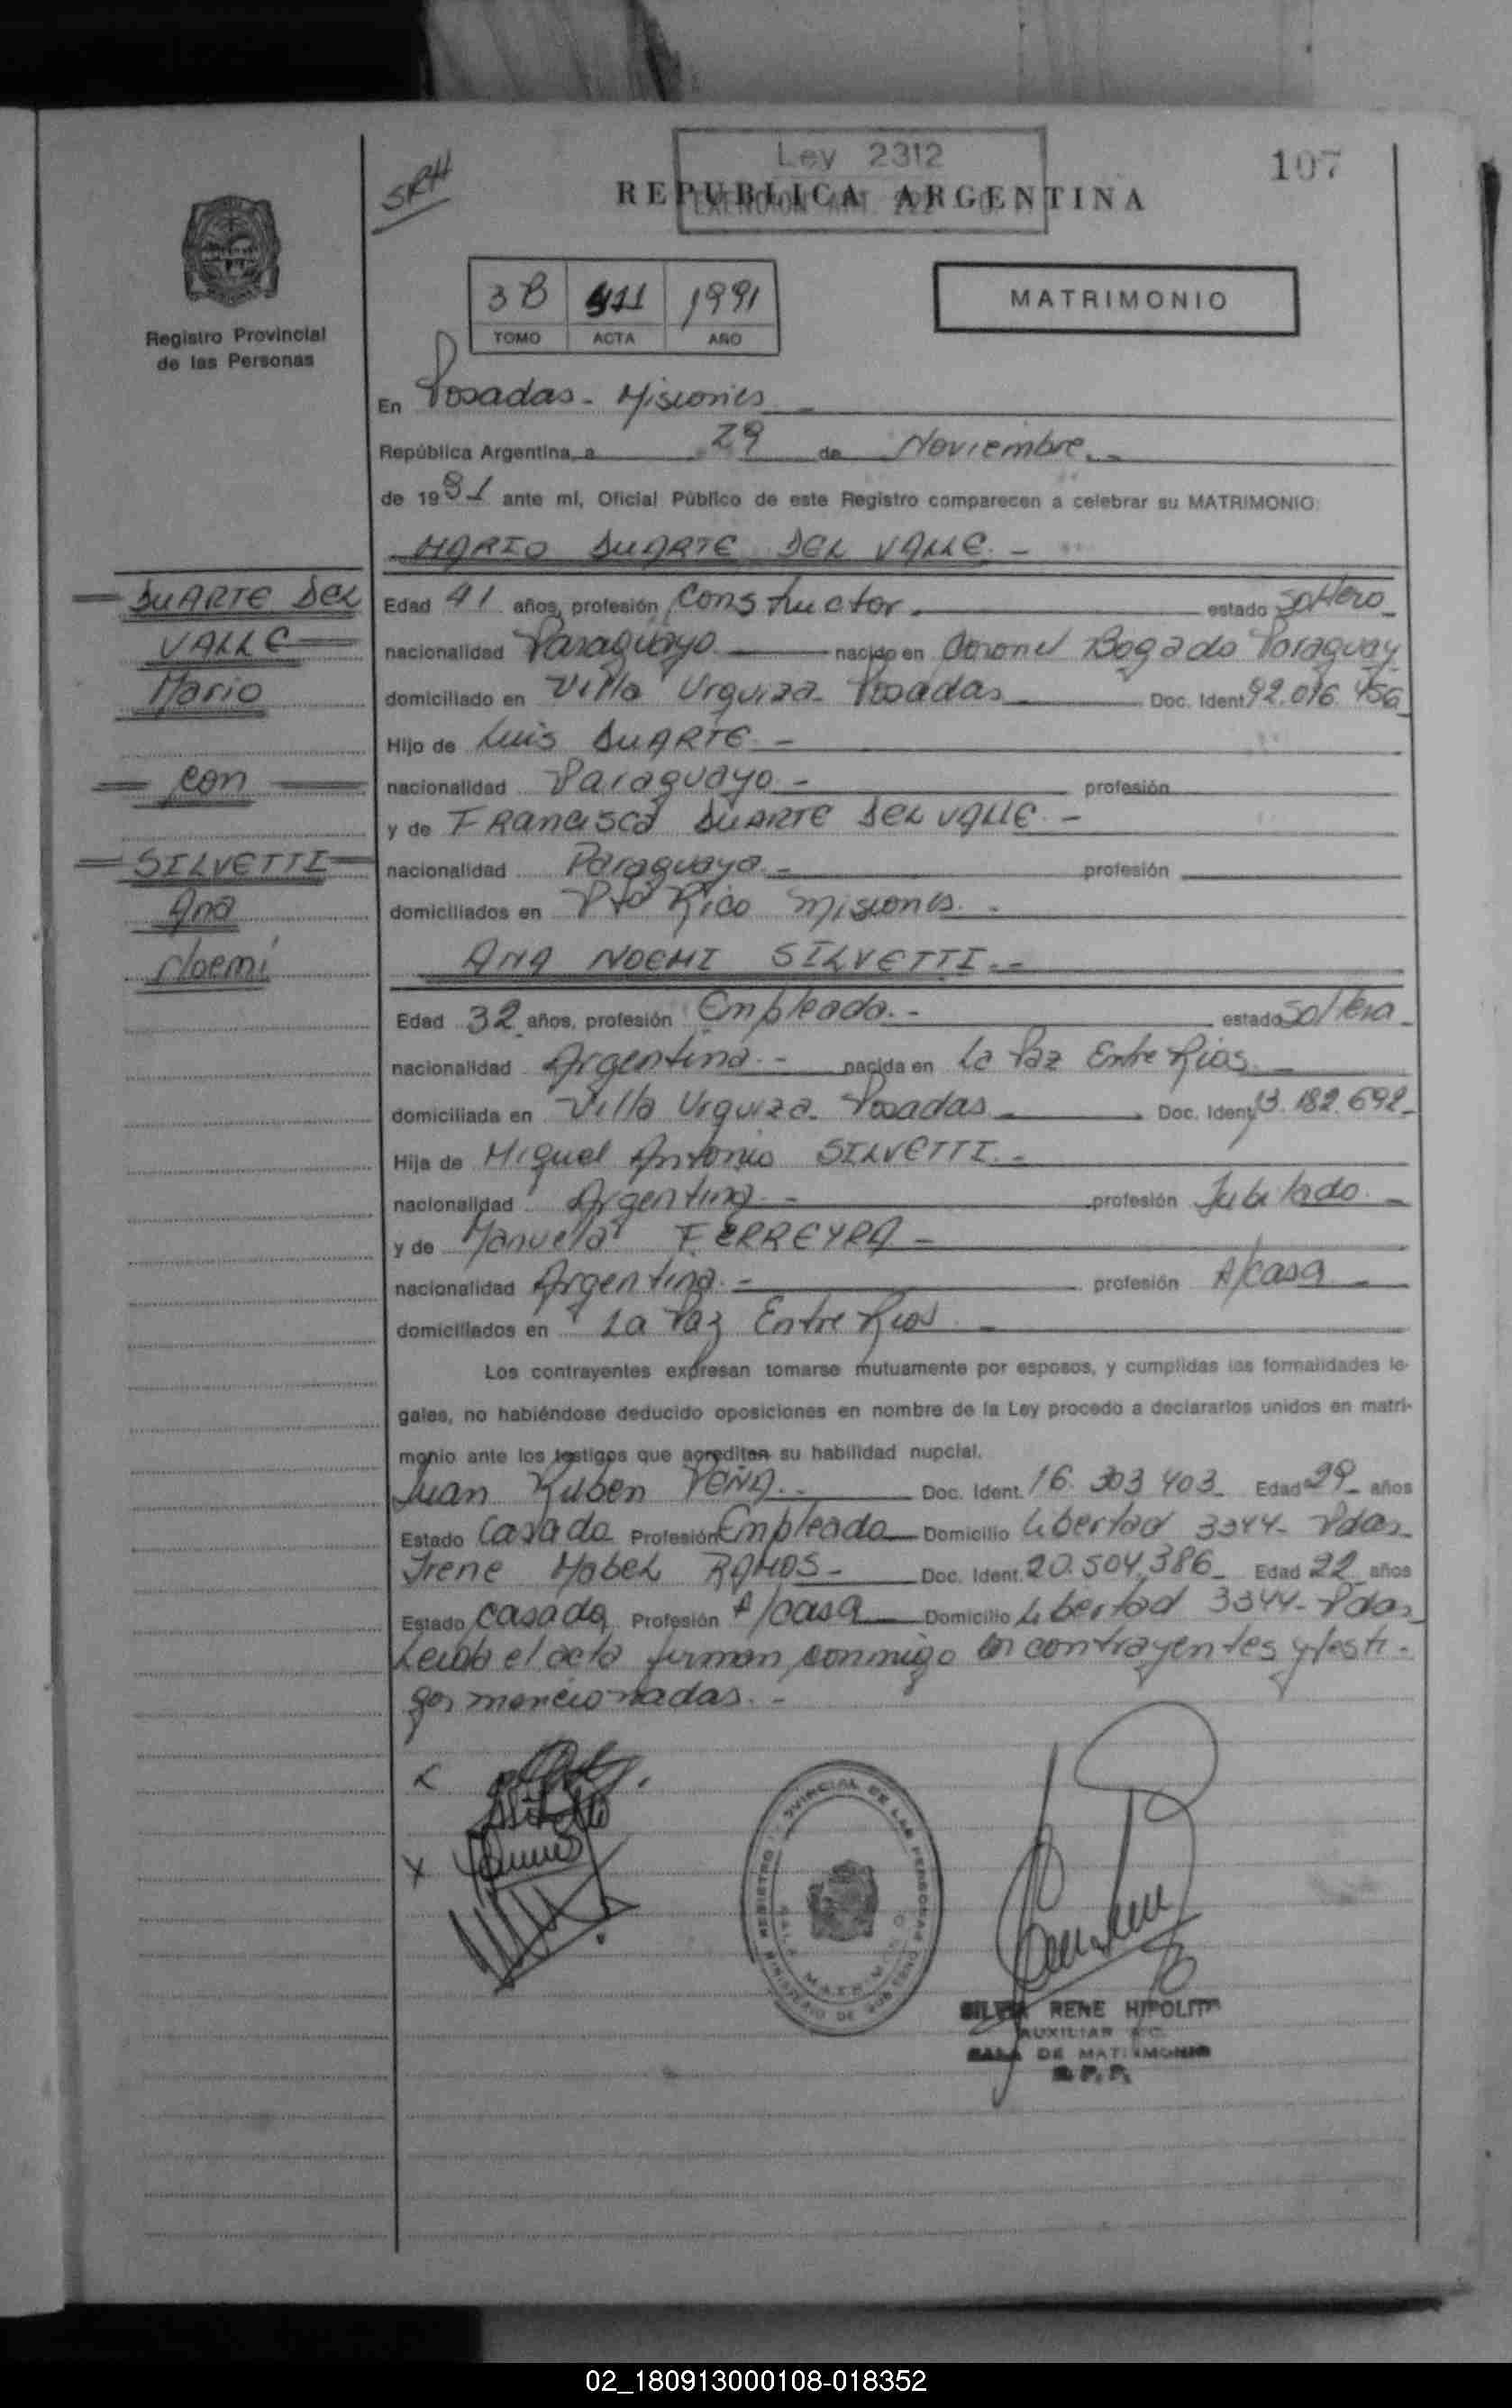 SRH
Ley 2312
107
REPUBLICA ARGENTINA
Registro Provincial
de las Personas
3B 411 1991
TOMO ACTA AÑO
MATRIMONIO
En Posadas - Misiones
República Argentina, a 29 de Noviembre.-
de 1991 ante mí, Oficial Público de este Registro comparecen a celebrar su MATRIMONIO:
MARIO DUARTE DEL VALLE.-
DUARTE DEL
VALLE
Mario
con
SILVETTI
Ana
Noemí
Edad 41 años, profesión Constructor. estado Soltero
nacionalidad Paraguayo nacido en Coronel Bogado Paraguay
domiciliado en Villa Urquiza - Posadas Doc. Ident. 92.016.456
Hijo de Luis DUARTE.-
nacionalidad Paraguayo.- profesión
y de FRANCISCA DUARTE DEL VALLE.-
nacionalidad Paraguaya.- profesión
domiciliados en Pto Rico Misiones.-
ANA NOEMI SILVETTI.-
Edad 32 años, profesión Empleada.- estado Soltera
nacionalidad Argentina.- nacida en La Paz Entre Rios
domiciliada en Villa Urquiza - Posadas Doc. Ident. 13.182.692
Hija de Miguel Antonio SILVETTI.-
nacionalidad Argentina.- profesión Jubilado.-
y de Manuela FERREYRA -
nacionalidad Argentina.- profesión A/casa
domiciliados en La Paz Entre Rios
Los contrayentes expresan tomarse mutuamente por esposos, y cumplidas las formalidades le-
gales, no habiéndose deducido oposiciones en nombre de la Ley procedo a declararlos unidos en matri-
monio ante los testigos que acreditan su habilidad nupcial.
Juan Ruben PEÑA.- Doc. Ident. 16.303.403 Edad 29 años
Estado Casado Profesión Empleado Domicilio Libertad 3344 - Pdas
Irene Mabel RAMOS - Doc. Ident. 20.504.386 Edad 22 años
Estado Casada Profesión A/casa Domicilio Libertad 3344 - Pdas
Leida el acta firman conmigo los contrayentes y testi-
gos mencionadas.-
REGISTRO PROVINCIAL DE LAS PERSONAS
MINISTERIO DE GOBIERNO
SILVIA RENE HIPOLITO
AUXILIAR
SALA DE MATRIMONIO
R.P.P.
02_180913000108-018352